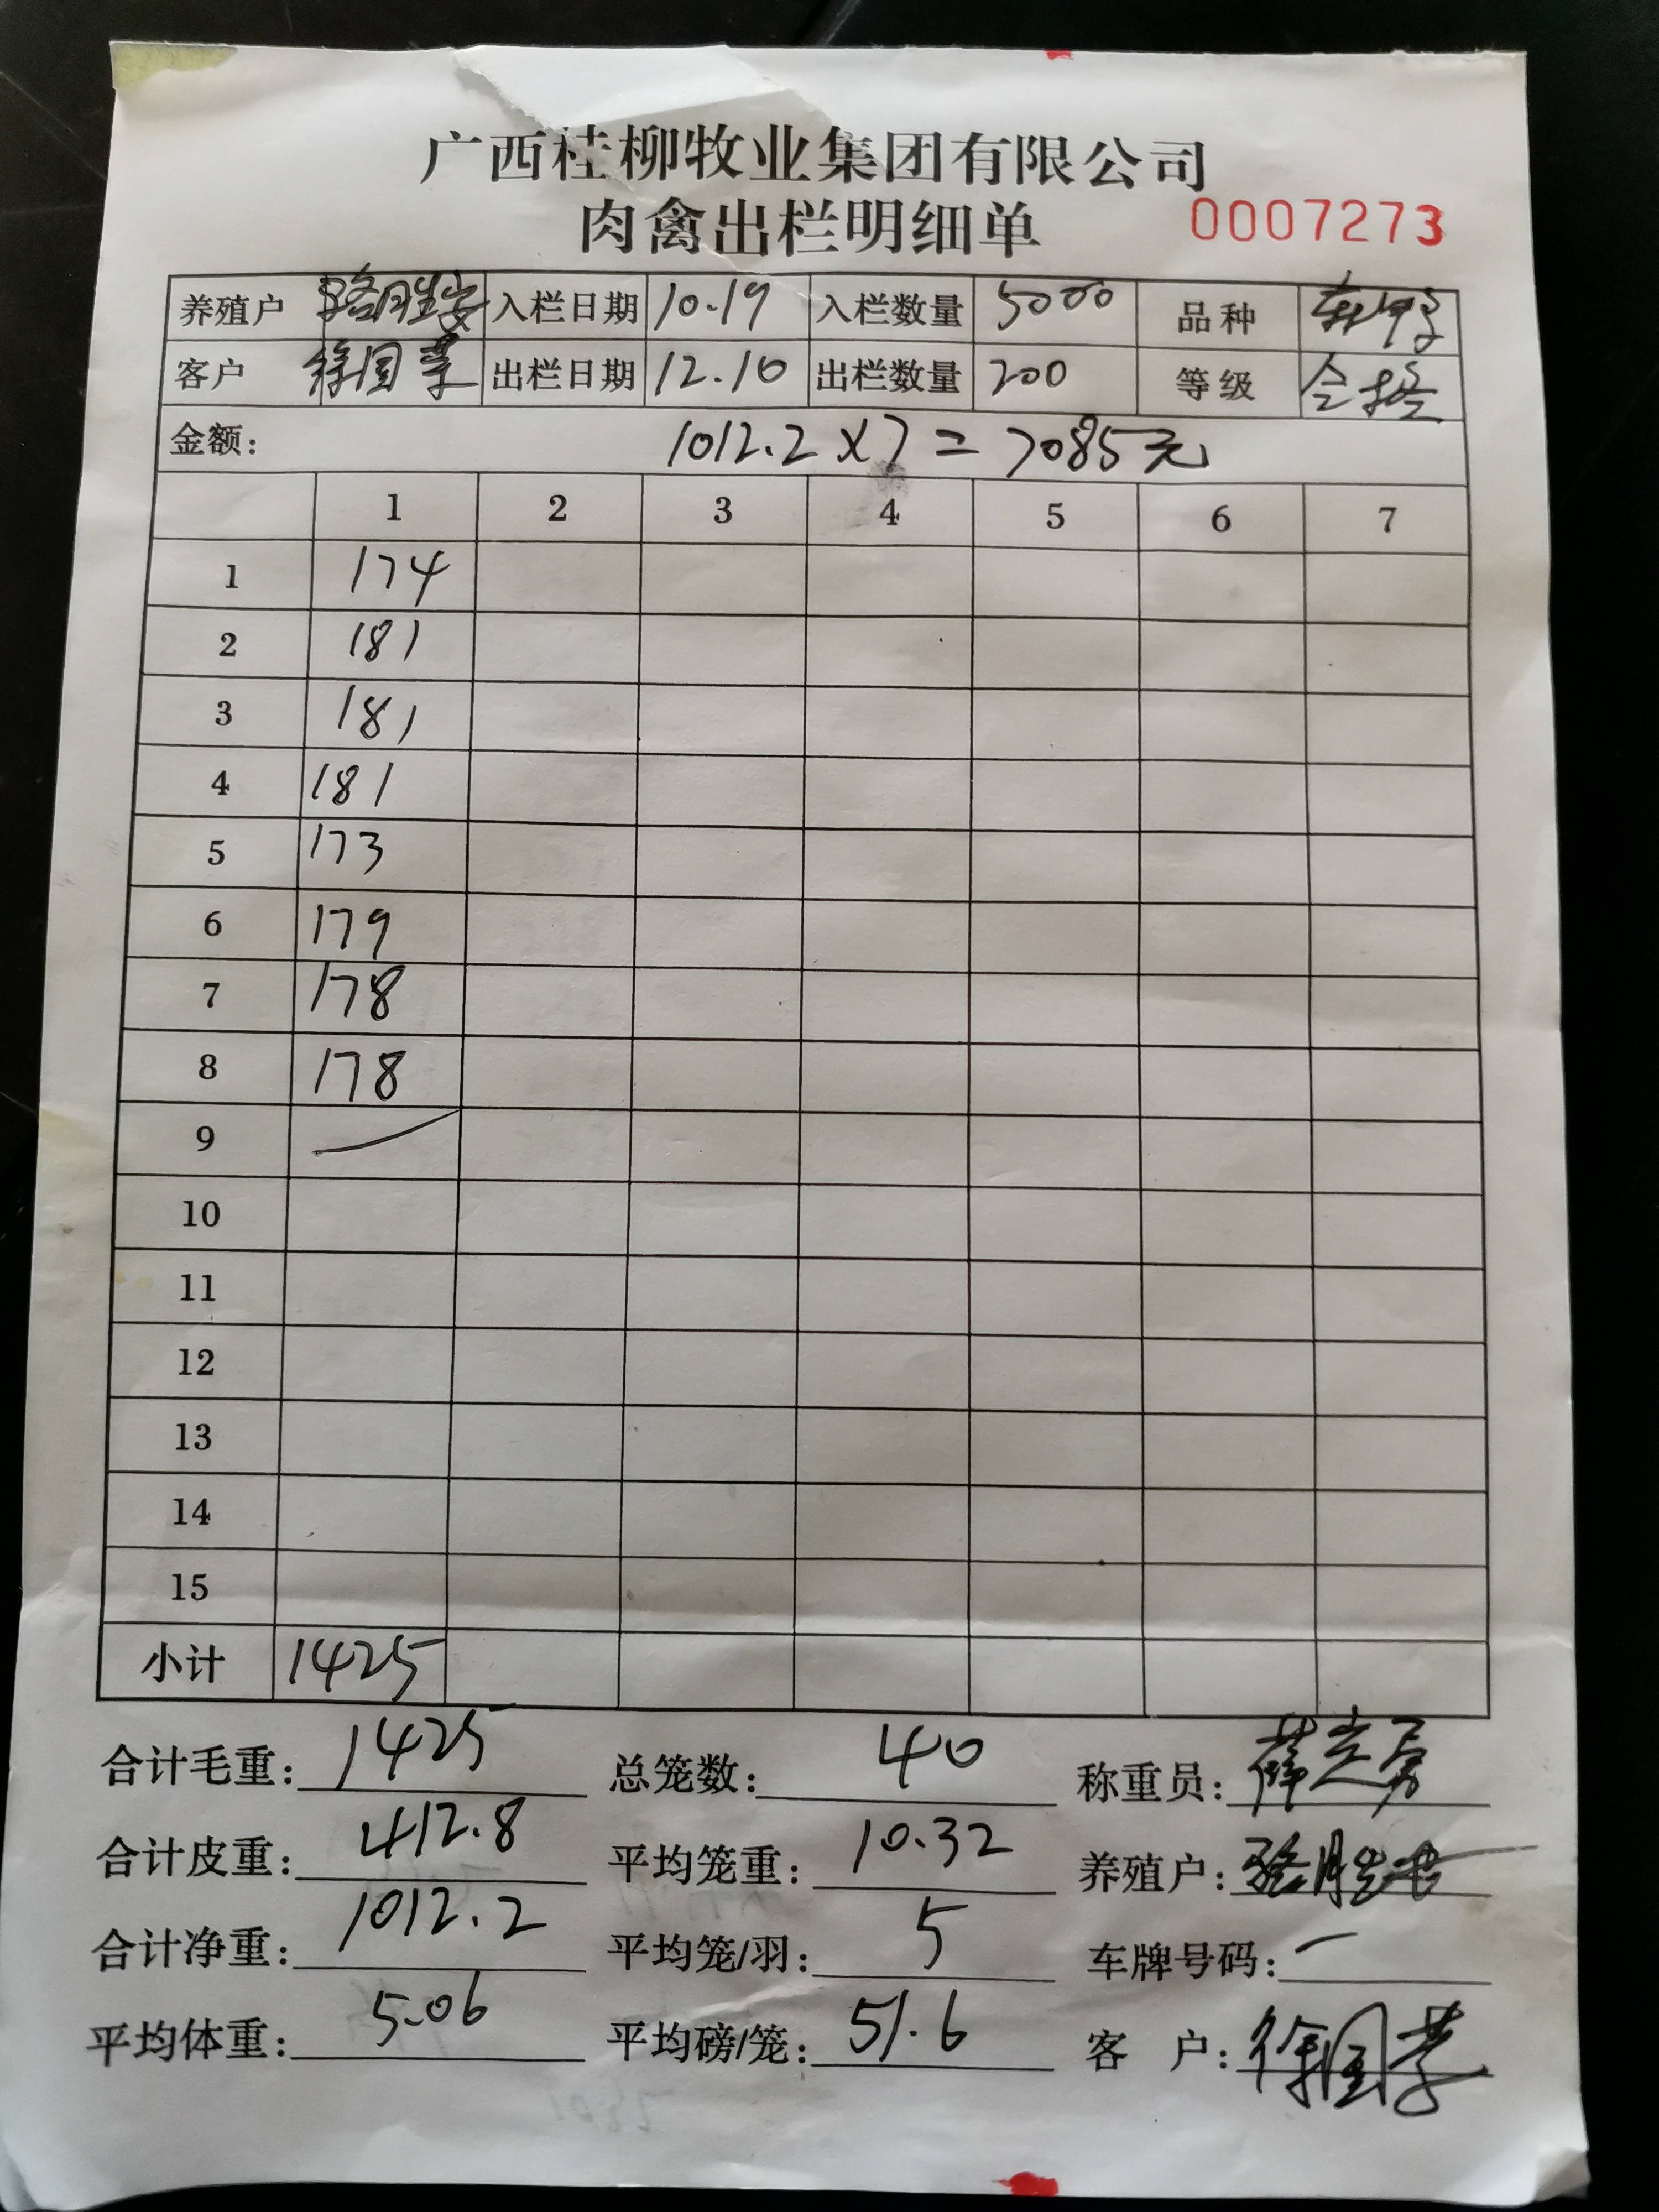 广西桂柳牧业集团有限公司
肉禽出栏明细单 0007273
养殖户 骆胜安 入栏日期 10.19 入栏数量 5000 品种
客户 徐国 出栏日期 12.16 出栏数量 200 等级
金额: 1012.2×7=7085元
1 2 3 4 5 6 7
1 174
2 181
3 181
4 181
5 173
6 179
7 178
8 178
9
10
11
12
13
14
15
小计 1425
合计毛重: 1425 总笼数: 40 称重员: 薛
合计皮重: 412.8 平均笼重: 10.32 养殖户: 骆胜安
合计净重: 1012.2 平均笼/羽: 5 车牌号码: 一
平均体重: 5.06 平均磅/笼: 51.6 客 户: 徐国